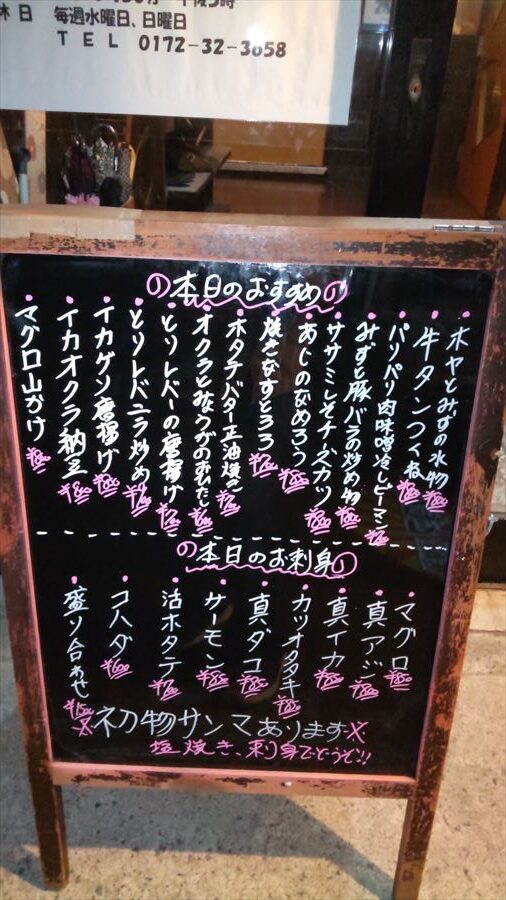 休日 毎週水曜日、日曜日
TEL 0172-32-3658
本日のおすすめ
ホヤとみずの水物 ¥700
牛タンつくね
パリパリ肉味噌冷しピーマン
みずと豚バラの炒め物
ササミしそチーズカツ
あじのなめろう
焼きなすとろろ
ホタテバター正油焼き
オクラとみょうがのおひたし
とりレバーの唐揚げ
とりレバニラ炒め
イカゲソ唐揚げ
イカオクラ納豆
マグロ山かけ
本日のお刺身
マグロ ¥850
真アジ
真イカ ¥850
カツオタタキ
真ダコ ¥850
サーモン ¥850
活ホタテ
コハダ ¥600
盛り合わせ
※初物サンマあります※
塩焼き、刺身でどうぞ!!